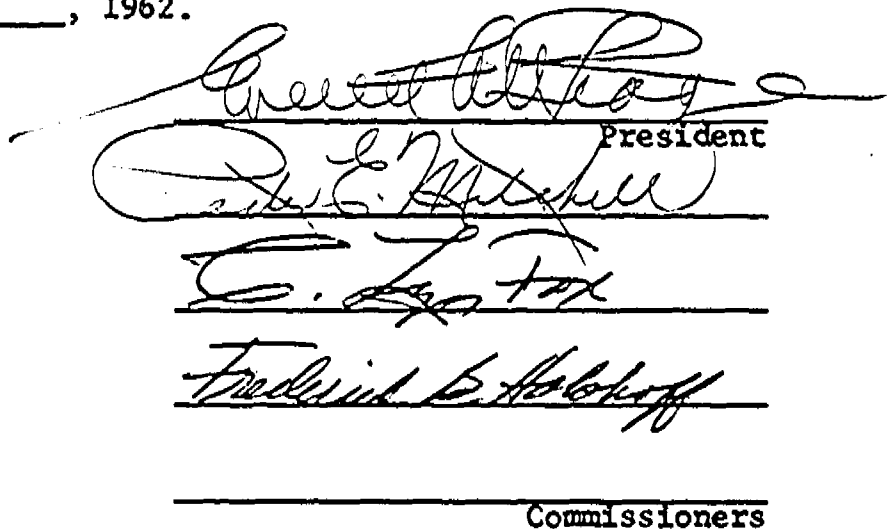 , 1962.
Everett
President
Peter E. Mitchell
C. Lyn Fox
Frederick B. Holoboff
Commissioners